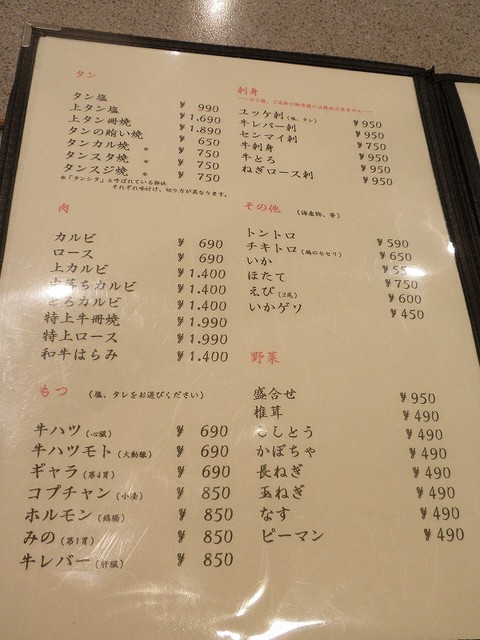 タン
タン塩 ¥ 990
上タン塩 ¥1.690
上タン冊焼 ¥1.890
タンの賄い焼 ¥ 650
タンカル焼 * ¥ 750
タンスタ焼 * ¥ 750
タンスジ焼 * ¥ 750
*「タンシタ」と呼ばれている部位
それぞれ味付け、切り方が異なります。
肉
カルビ ¥ 690
ロース ¥ 690
上カルビ ¥1.400
中落ちカルビ ¥1.400
とろカルビ ¥1.400
特上牛冊焼 ¥1.990
特上ロース ¥1.990
和牛はらみ ¥1.400
もつ (塩、タレをお選びください)
牛ハツ(心臓) ¥ 690
牛ハツモト(大動脈) ¥ 690
ギャラ(第4胃) ¥ 690
コプチャン(小腸) ¥ 850
ホルモン(縞腸) ¥ 850
みの(第1胃) ¥ 850
牛レバー(肝臓) ¥ 850
刺身
ユッケ刺(塩、タレ) ¥950
牛レバー刺 ¥950
センマイ刺 ¥750
牛刺身 ¥950
牛とろ ¥950
ねぎロース刺 ¥950
その他 (海産物、等)
トントロ ¥590
チキトロ(鶏のセセリ) ¥650
いか
ほたて ¥750
えび(2尾) ¥600
いかゲソ ¥450
野菜
盛合せ ¥950
椎茸 ¥490
ししとう ¥490
かぼちゃ ¥490
長ねぎ ¥490
玉ねぎ ¥490
なす ¥490
ピーマン ¥490